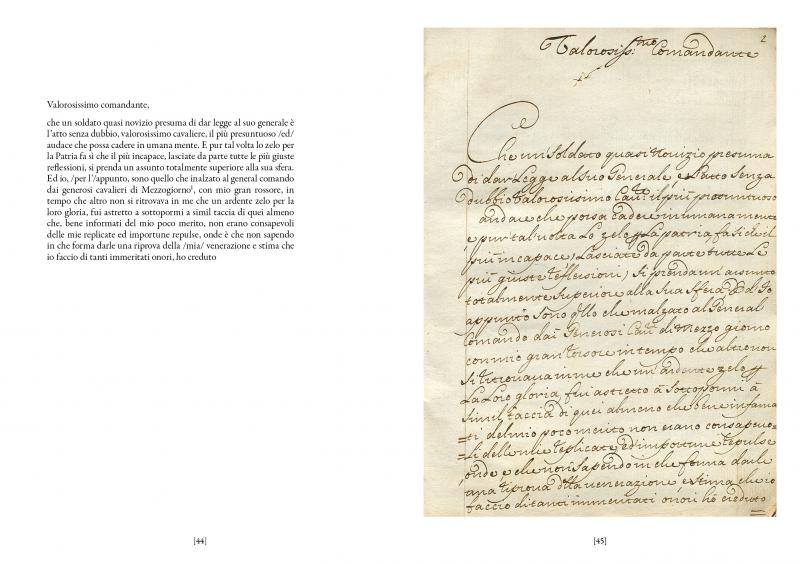 Valorosissimo comandante,
che un soldato quasi novizio presuma di dar legge al suo generale è
l'atto senza dubbio, valorosissimo cavaliere, il più presuntuoso /ed/
audace che possa cadere in umana mente. E pur tal volta lo zelo per
la Patria fa sì che il più incapace, lasciate da parte tutte le più giuste
reflessioni, si prenda un assunto totalmente superiore alla sua sfera.
Ed io, /per l'/appunto, sono quello che inalzato al general comando
dai generosi cavalieri di Mezzogiorno¹, con mio gran rossore, in
tempo che altro non si ritrovava in me che un ardente zelo per la
loro gloria, fui astretto a sottopormi a simil taccia di quei almeno
che, bene informati del mio poco merito, non erano consapevoli
delle mie replicate ed importune repulse, onde è che non sapendo
in che forma darle una riprova della /mia/ venerazione e stima che
io faccio di tanti immeritati onori, ho creduto
[44]
2
Valorosiss:mo Comandante
Che un Soldato quasi Novizio presuma
di dar Legge al Suo Generale è l'atto Senza
dubbio Valorosissimo Cavre: il più presontuoso
audace che possa cadere in umana mente
e pur tal volta Lo zelo p La patria, fa si che il
più incapace, Lasciate da parte tutte Le
più giuste reflessioni, Si prenda un assunto
totalmente Superiore alla Sua Sfera Ed Io
appunto Sono qllo che inalzato al General
Comando dai Generosi Cavri di Mezzo giorno
con mio gran rossore in tempo che altro non
Si ritrovava in me che un ardente zelo p
La Loro gloria, fui astretto à Sottopormi à
Simil taccia di quei almeno che bene informa
=ti del mio poco merito non erano consapevo
=li delle mie replicate ed importune repulse
onde è che non Sapendo in che forma darle
una riprova dlla venerazione e Stima che io
faccio di tanti immeritati onori ho creduto
[45]